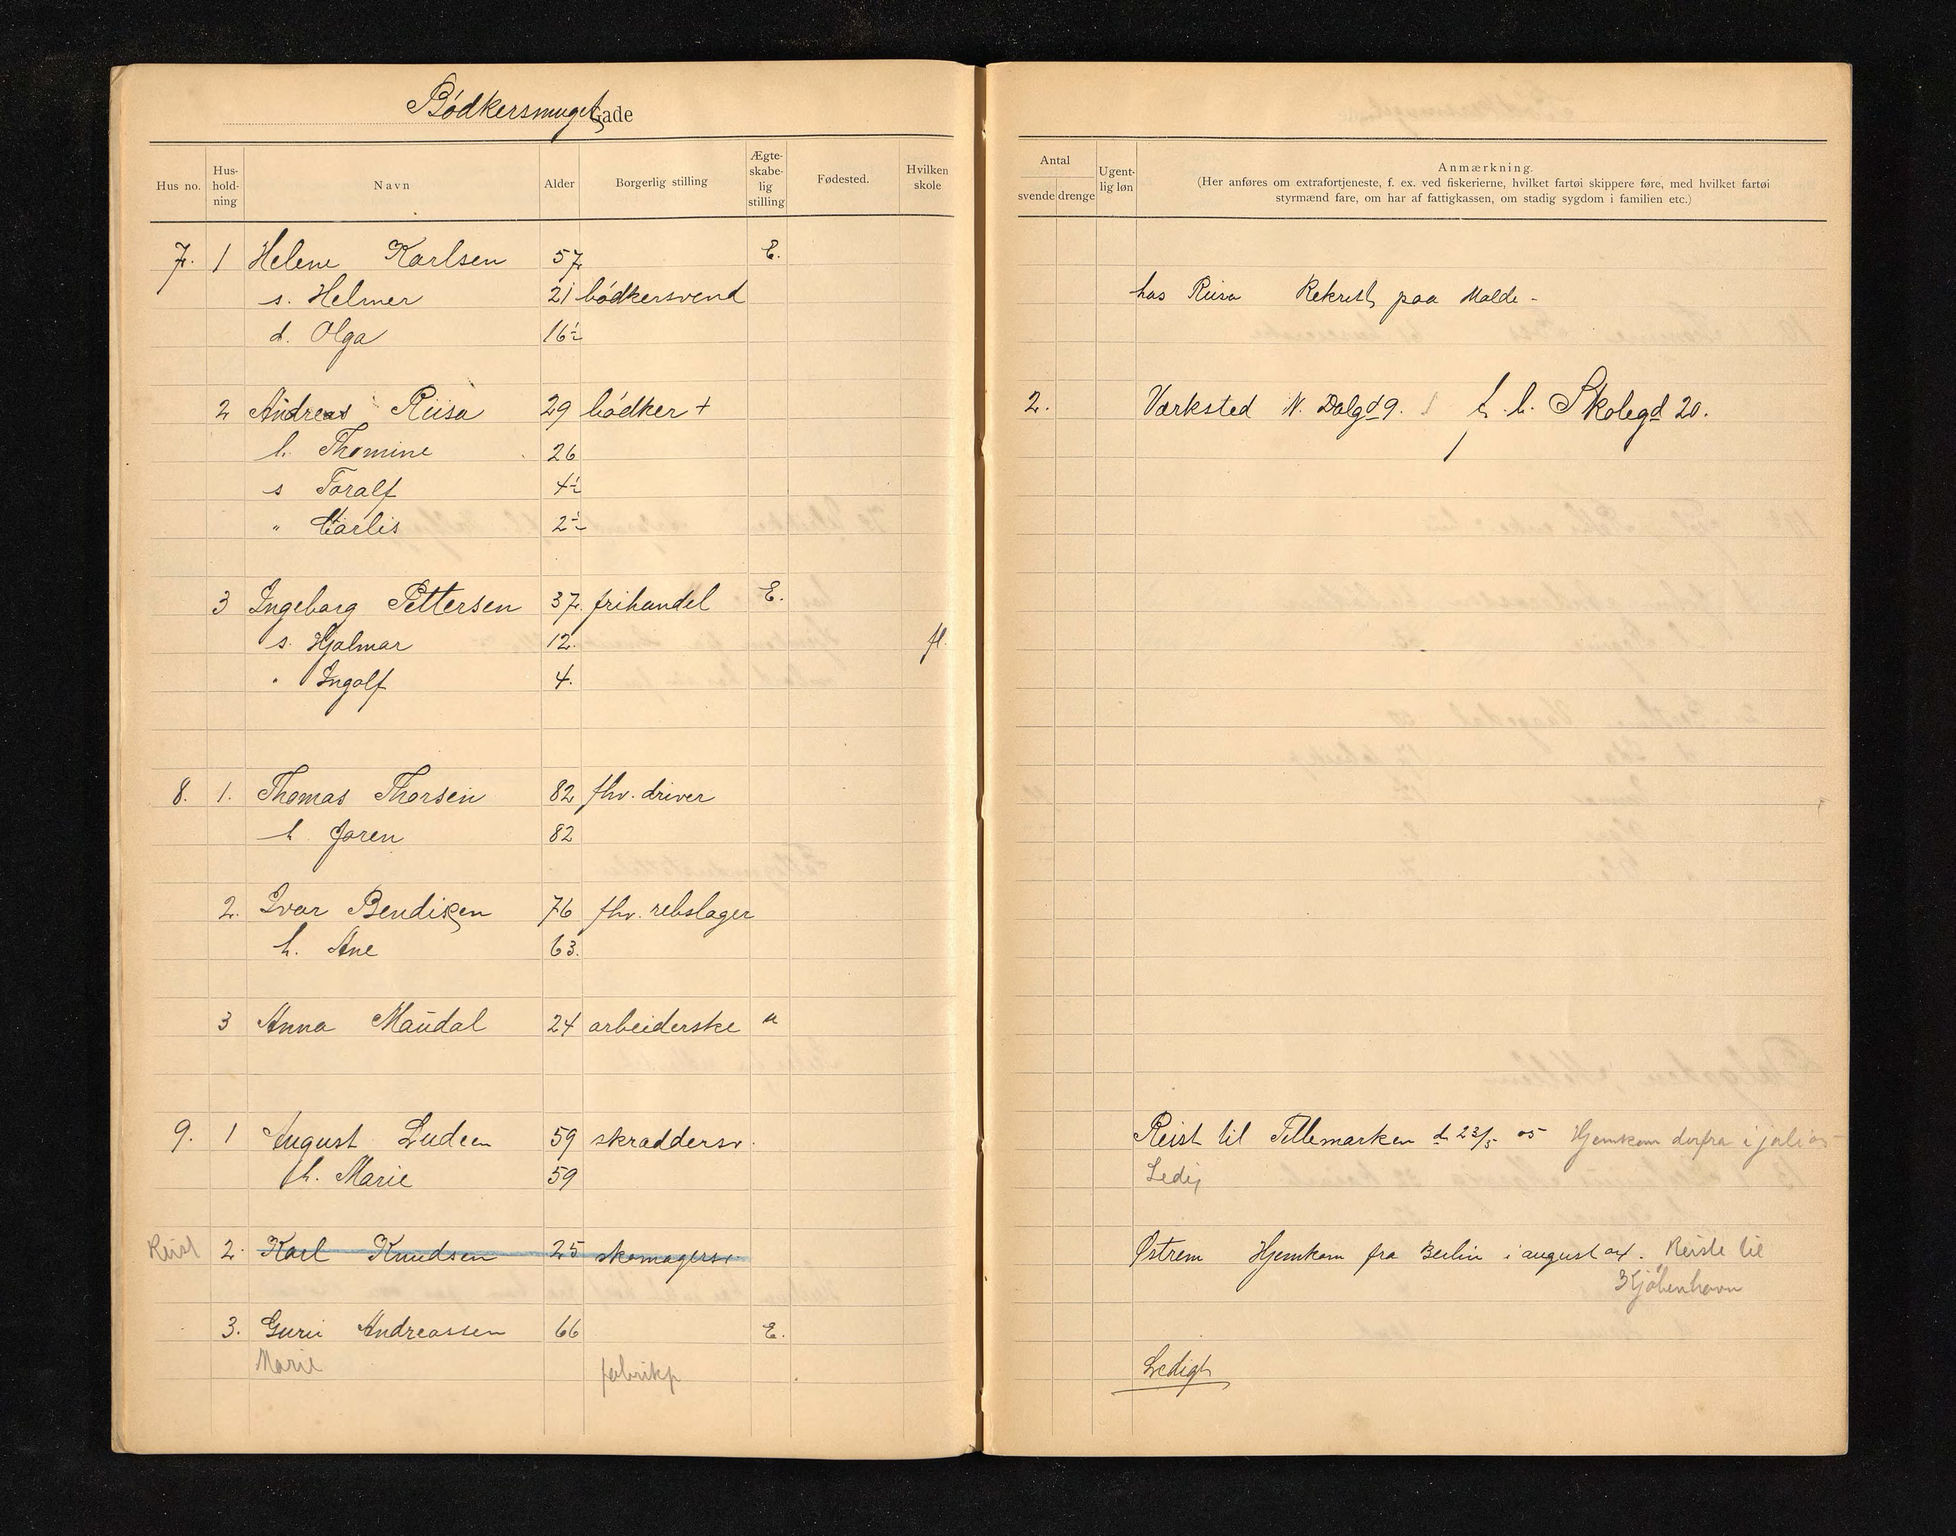 Bødkersmuget Gade
Hus no. Hus-hold-ning Navn Alder Borgerlig stilling Ægte-skabe-lig stilling Fødested. Hvilken skole
Antal svende drenge Ugent-lig løn Anmærkning.
(Her anføres om extrafortjeneste, f. ex. ved fiskerierne, hvilket fartøi skippere føre, med hvilket fartøi
styrmænd fare, om har af fattigkassen, om stadig sygdom i familien etc.)
7. 1 Helene Karlsen 57 E.
s. Helmer 21 bødkersvend hos Riisa Rekrut paa Malde -
d. Olga 16½
2 Andreas Riisa 29 bødker + 2. Værksted N. Dalgd 9. f. b. Skolegd 20.
h. Thomine 26
s Toralf 4½
" Carlis 2½
3 Ingeborg Pettersen 37. frihandel E.
s. Hjalmar 12. fl.
" Ingolf 4.
8. 1. Thomas Thorsen 82 fhv. driver
h. Joren 82
2. Ivar Bendiksen 76 fhv. rebslager
h. Ane 63.
3 Anna Maudal 24 arbeiderske u
9. 1 August Ludeen 59 skræddersv. Reist til Tellemarken d. 23/5 05 Hjemkom derfra i juli 05
h. Marie 59 Ledig
Reist 2. Karl Knudsen 25 skomagersv. Østrem Hjemkom fra Berlin i august 04. Reiste til
Kjøbenhavn
3. Guri Andreassen 66 E.
Marie fabrikp Ledigt